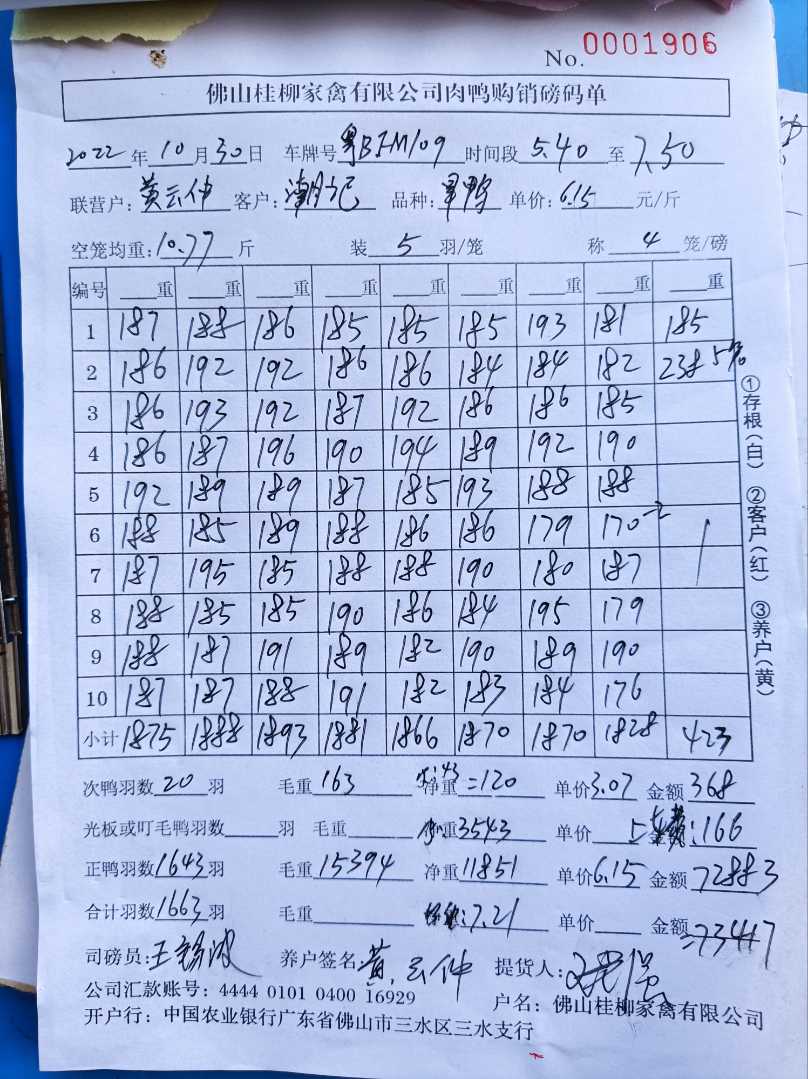 No. 0001906
佛山桂柳家禽有限公司肉鸭购销磅码单
2022年10月30日 车牌号粤BJM109 时间段5.40至7.50
联营户:黄云仲 客户:潮记 品种:单价:6.15元/斤
空笼均重:10.77斤 装5羽/笼 称4笼/磅
编号 重 重 重 重 重 重 重 重 重
1 187 188 186 185 185 185 193 181 185
2 186 192 192 186 186 184 184 182 238 5%
3 186 193 192 187 192 186 186 185
4 186 187 196 190 194 189 192 190
5 192 189 189 187 185 193 188 188
6 188 185 189 188 186 186 179 170-2
7 187 195 185 188 188 190 180 187
8 188 185 185 190 186 184 195 179
9 188 187 191 189 182 190 189 190
10 187 187 188 191 182 183 184 176
小计 1875 1888 1893 1881 1866 1870 1870 1828 423
次鸭羽数20羽 毛重163 43 净重=120 单价3.07 金额368
光板或叮毛鸭羽数 羽 毛重 重3543 单价 :166
正鸭羽数1643羽 毛重15394 净重11851 单价6.15 金额72883
合计羽数1663羽 毛重 :7.21 单价 金额=73417
司磅员:王 养户签名:黄云仲 提货人:
公司汇款账号:4444 0101 0400 16929 户名:佛山桂柳家禽有限公司
开户行:中国农业银行广东省佛山市三水区三水支行
①存根(白) ②客户(红) ③养户(黄)